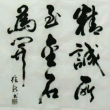 精誠所
至金石
為開